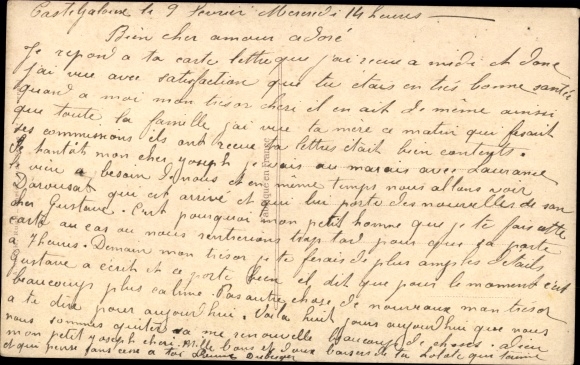 Casteljaloux le 9 fevrier Mercredi 14 heures
Bien cher amour adoré
Je repond a ta carte lettre que j'ai recue a midi et donc
j'ai vue avec satisfaction que tu etais en très bonne santée
quand a moi mon tresor cheri il en ait de même ainsi
que toute la famille j'ai vue ta mère ce matin qui fesait
ses commissions ils ont recue ta lettre était bien contents.
tantôt mon cher yoseph je vais au marais avec Laurance
le vieu a besoin de nous et en même temps nous allons voir
Darousat qui est arrivé et qui lui porte des nouvelles de son
cher Gustave. C'est pourquoi mon petit homme que je te fais cette
carte au cas ou nous rentrerions trop tard pour que sa parte
a 7 heures. Demain mon tresor je te ferais de plus amples details
Gustave a écrit et ce porte bien il dit que pour le moment c'est
beaucoup plus calme. Pas autre chose de nouveaux mon tresor
a te dire pour aujourd'hui. Voila huit jours aujourd'hui que nous
nous sommes quitter sa me renouvelle beaucoup de choses. Adieu
mon petit yoseph cheri. Mille bons et doux baisers de ta Lolote qui t'aime
et qui pense sans cesse a toi